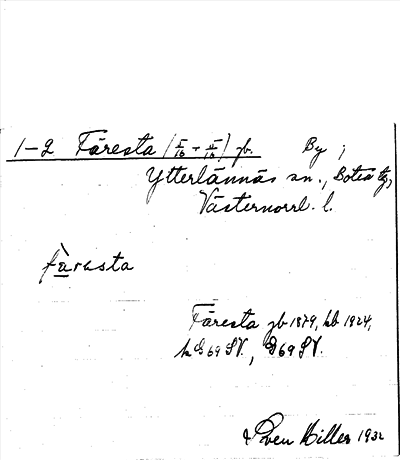 1-2 Färesta (5/16 + 5/16) jb. By i
Ytterlännäs sn., Boteå tg,
Västernorrl. l.
fà̱resta
Färesta jb 1879, kb 1924,
k G 69 SV., G 69 SV.
Sven Hilles 1932